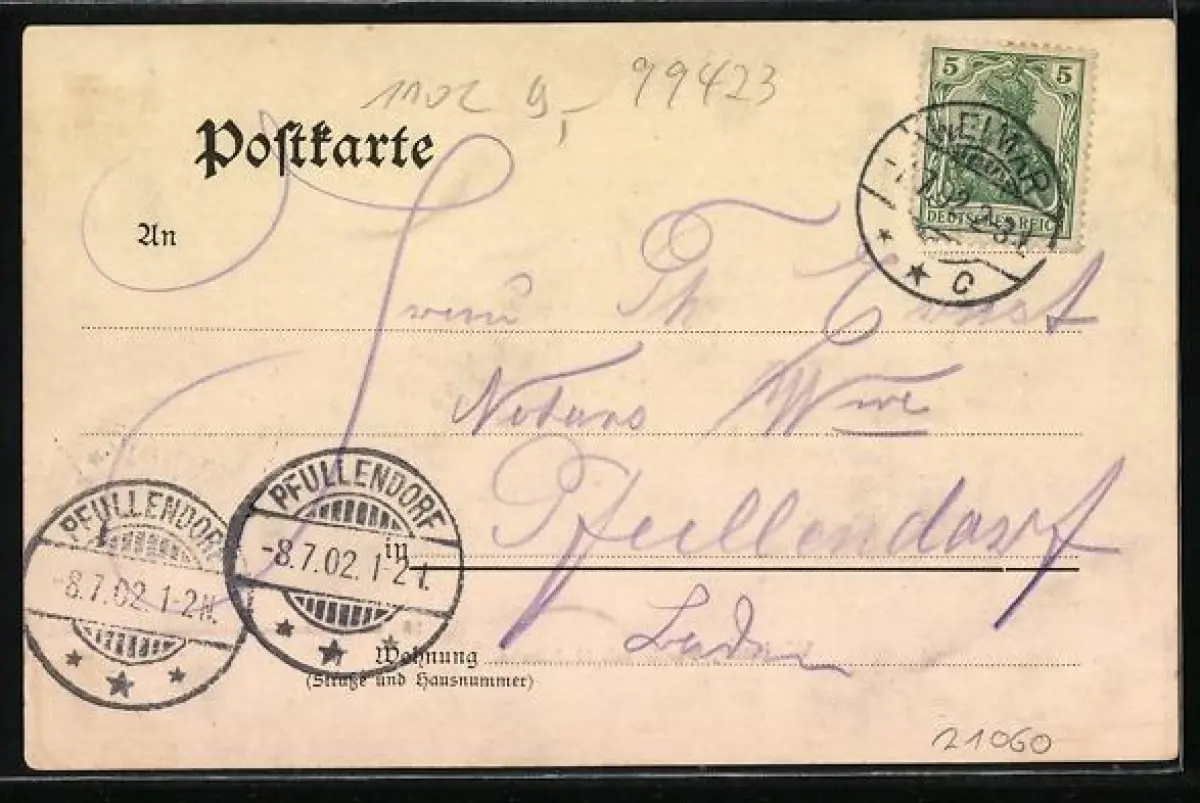 99423
5 5
Postkarte
WEIMAR
7.02.2-3N.
DEUTSCHES REICH
C
An
Frau Th. Ernst
Notars Wwe
Pfullendorf
PFULLENDORF
-8.7.02.1-2N.
PFULLENDORF
-8.7.02.1-2N.
in
Baden
Wohnung
(Straße und Hausnummer)
21060